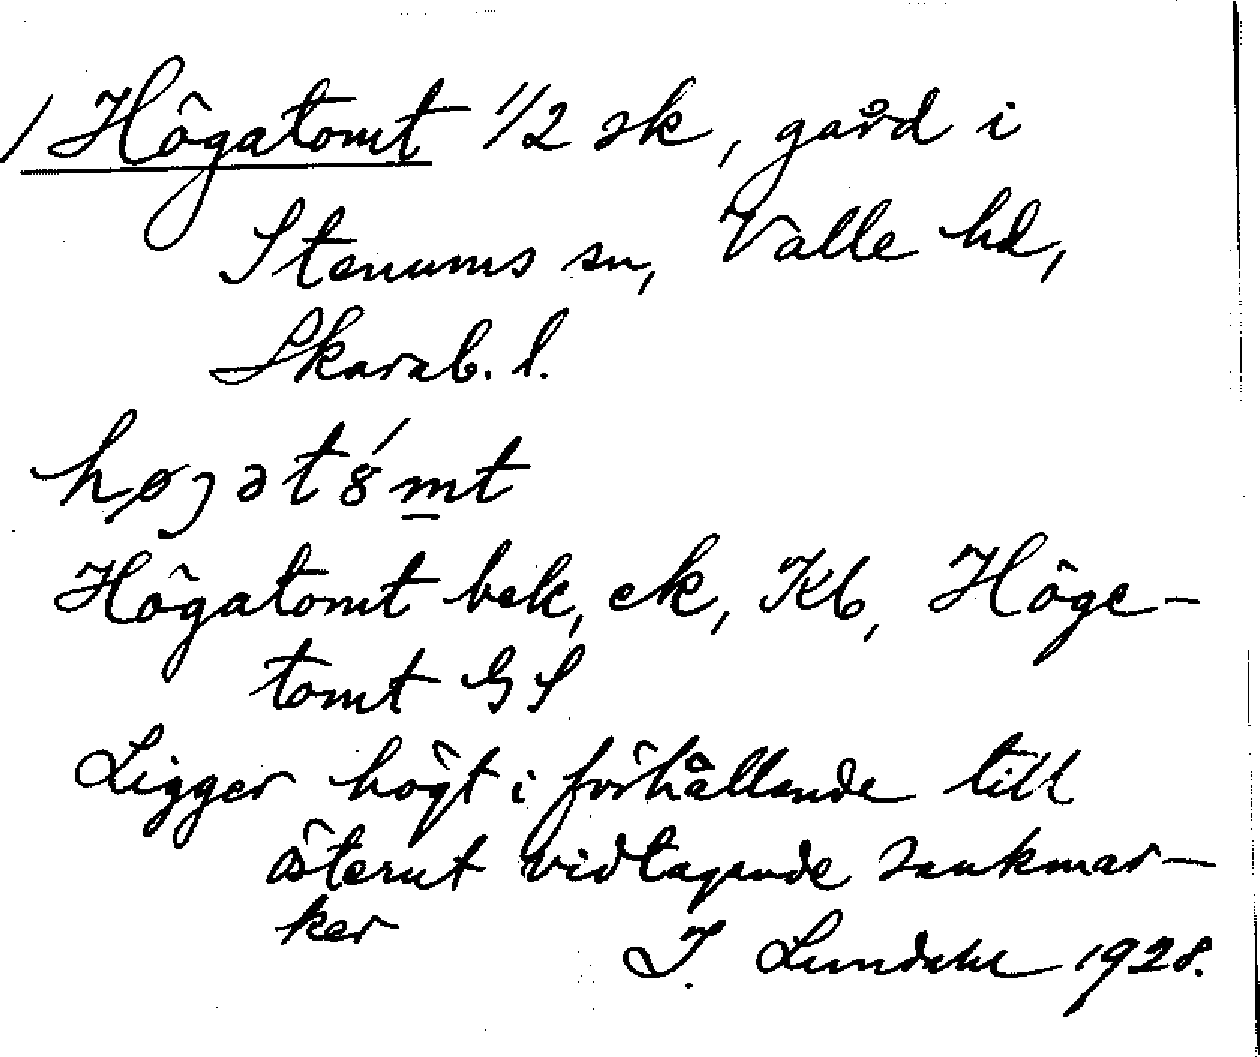 / Högatomt 1/2 sk, gård i
Stenums sn, Valle hd,
Skarab. l.
højət8́mt
Högatomt bek, ek, Kb, Höge-
tomt GS
Ligger högt i förhållande till
österut vidtagande sankmar-
ker
I. Lundahl 1928.